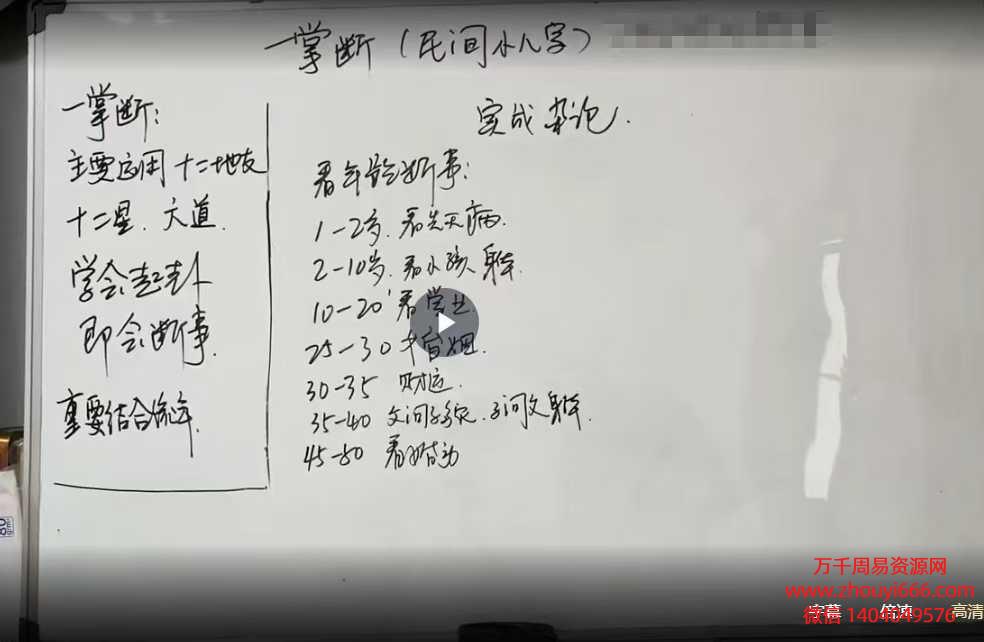 一掌断（民间小八字）
一掌断：
主要应用十二地支
十二星．六道．
学会起卦
即会断事．
重要结合流年．
实战杂论．
看年龄断事：
1-2岁．看先天病．
2-10岁．看小孩身体．
10-20 看学业
25-30 婚姻．
30-35 财运．
35-40 父问子女．子问父身体．
45-50 看婚动
万千周易资源网
www.zhouyi666.com
微信 1404049576
字幕 倍速 高清